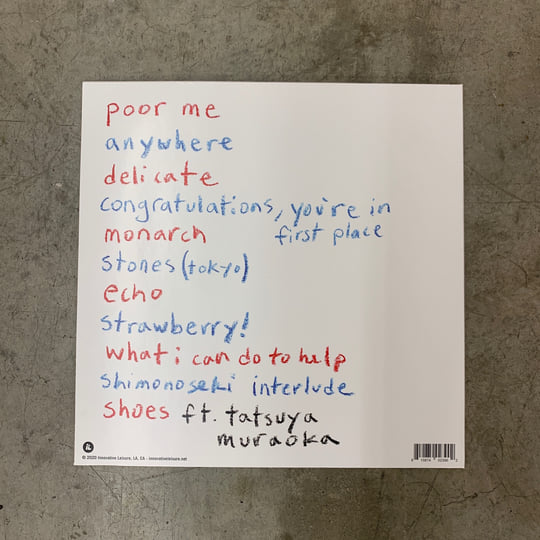 poor me
anywhere
delicate
congratulations, you're in
first place
monarch
stones (tokyo)
echo
strawberry!
what i can do to help
shimonoseki interlude
shoes ft. tatsuya
muraoka
© 2020 Innovative Leisure, LA, CA - innovativeleisure.net